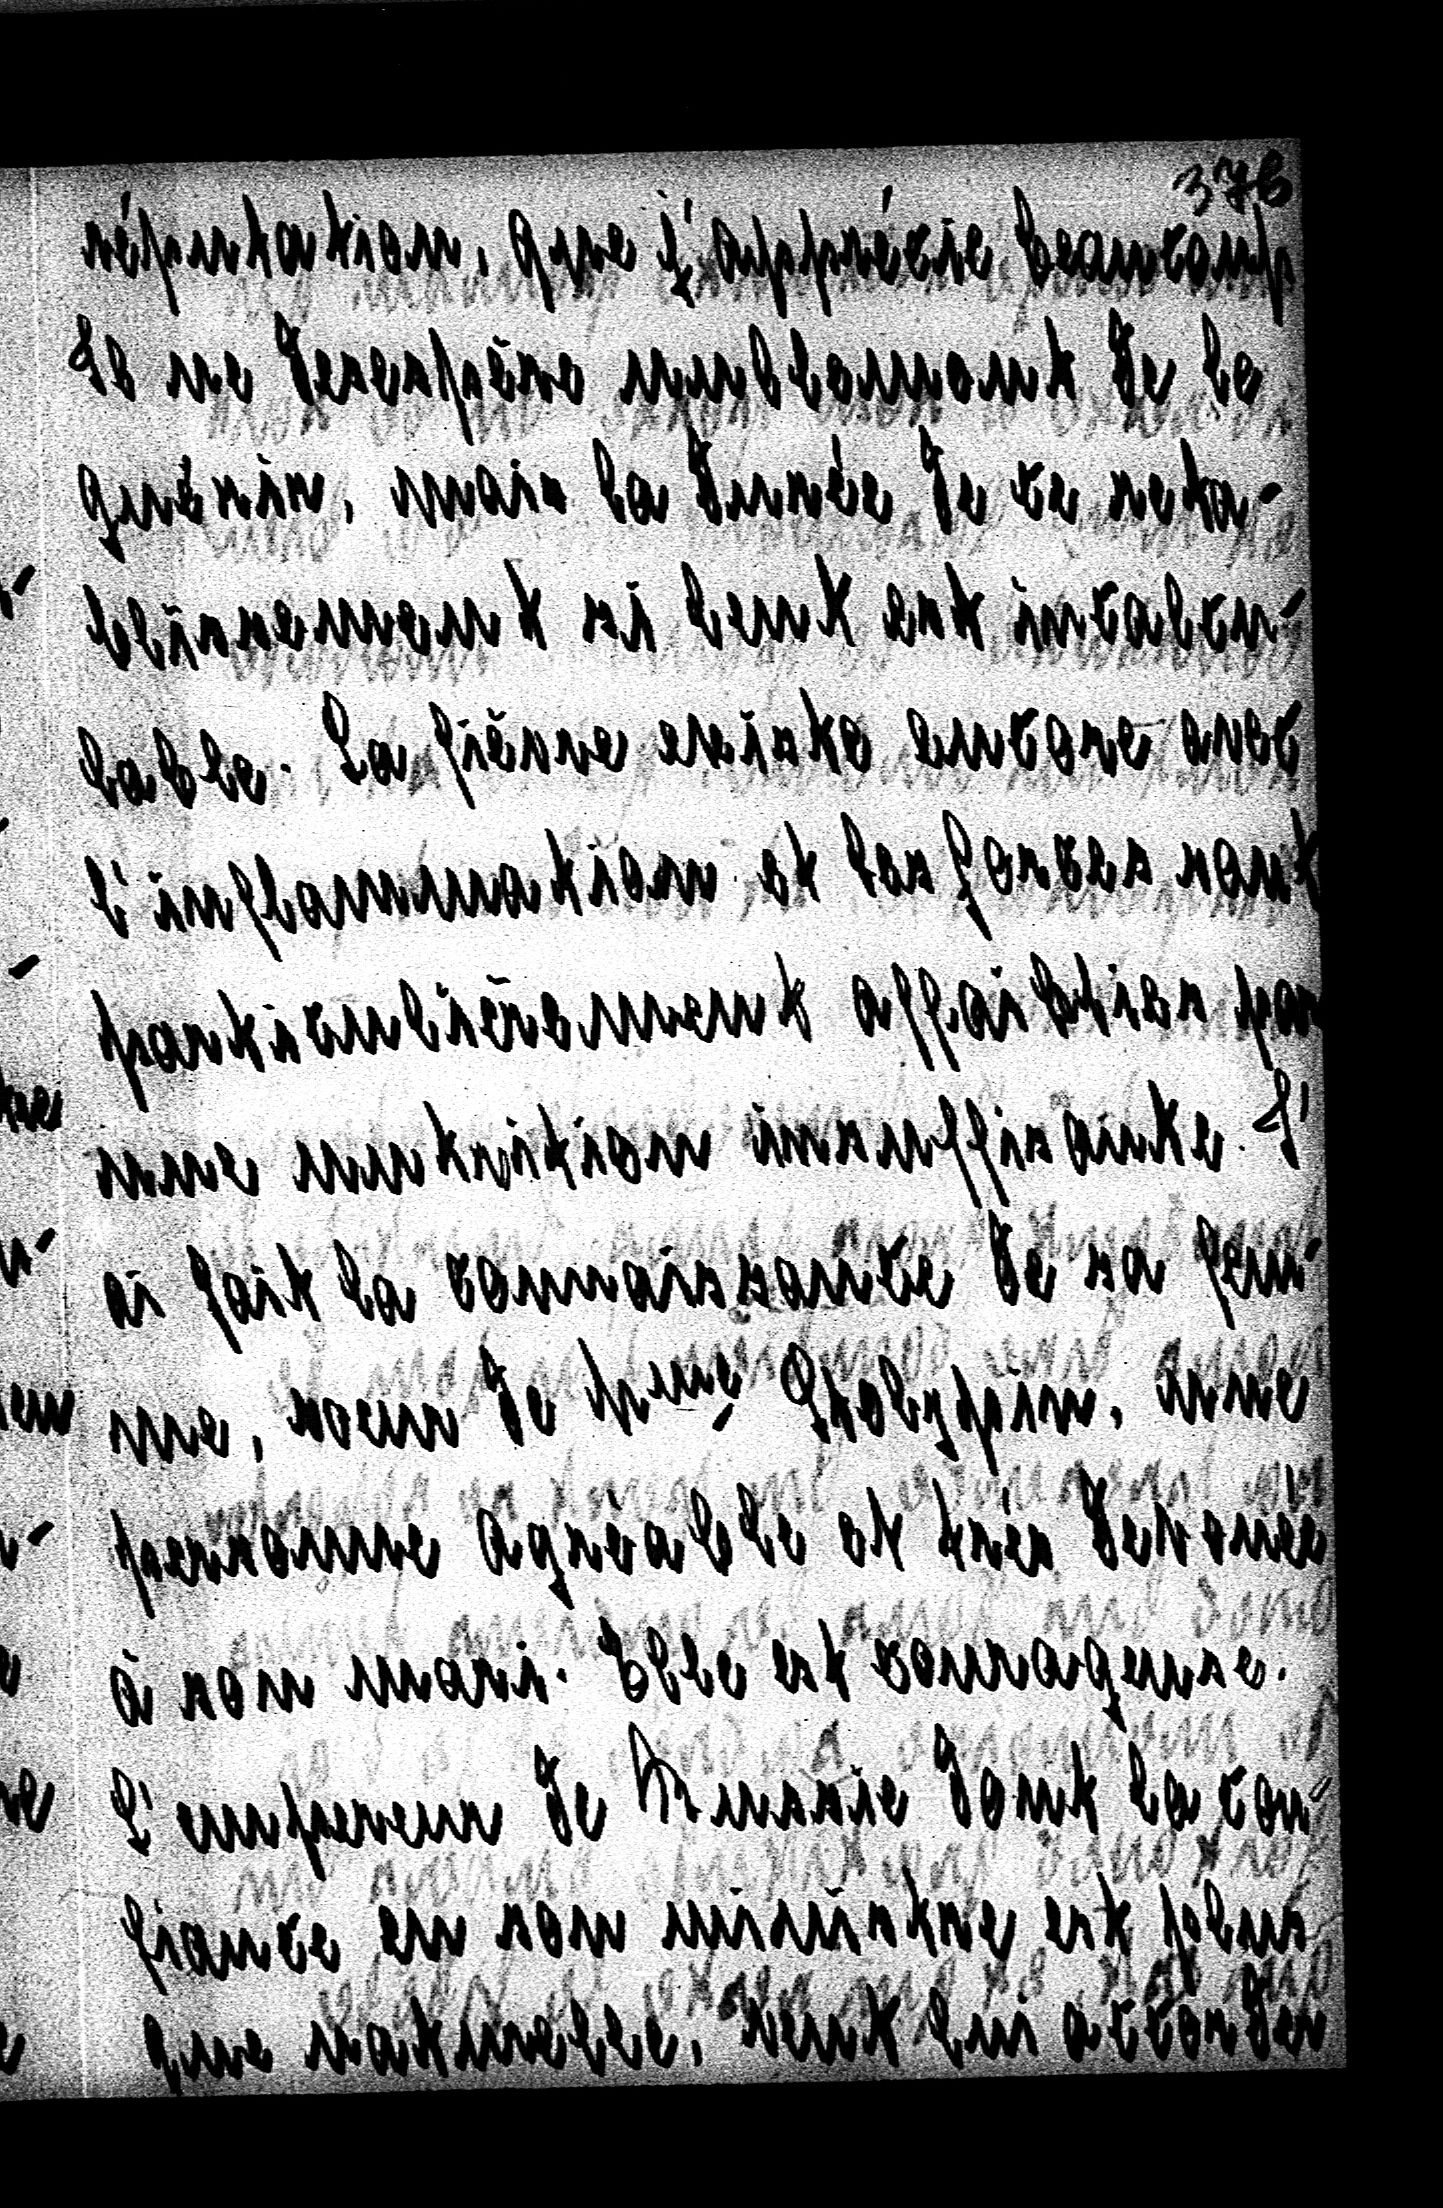 376
réputation, que j'apprécie beaucoup
Il ne desespère nullement de le
guérir, mais la durée de ce reta-
blissement si lent est incalcu-
lable. La fièvre existe encore avec
l'inflammation et ses forces sont
particulièrement affaiblies par
une nutrition insuffisante. J'
ai fait la connaissance de sa fem-
me, soeur de Stolypin, une
personne agréable et très devouée
à son mari. Elle est courageuse.
L'empereur de Russie dont la con-
fiance en son ministre est plus
que naturelle, veut lui accorder